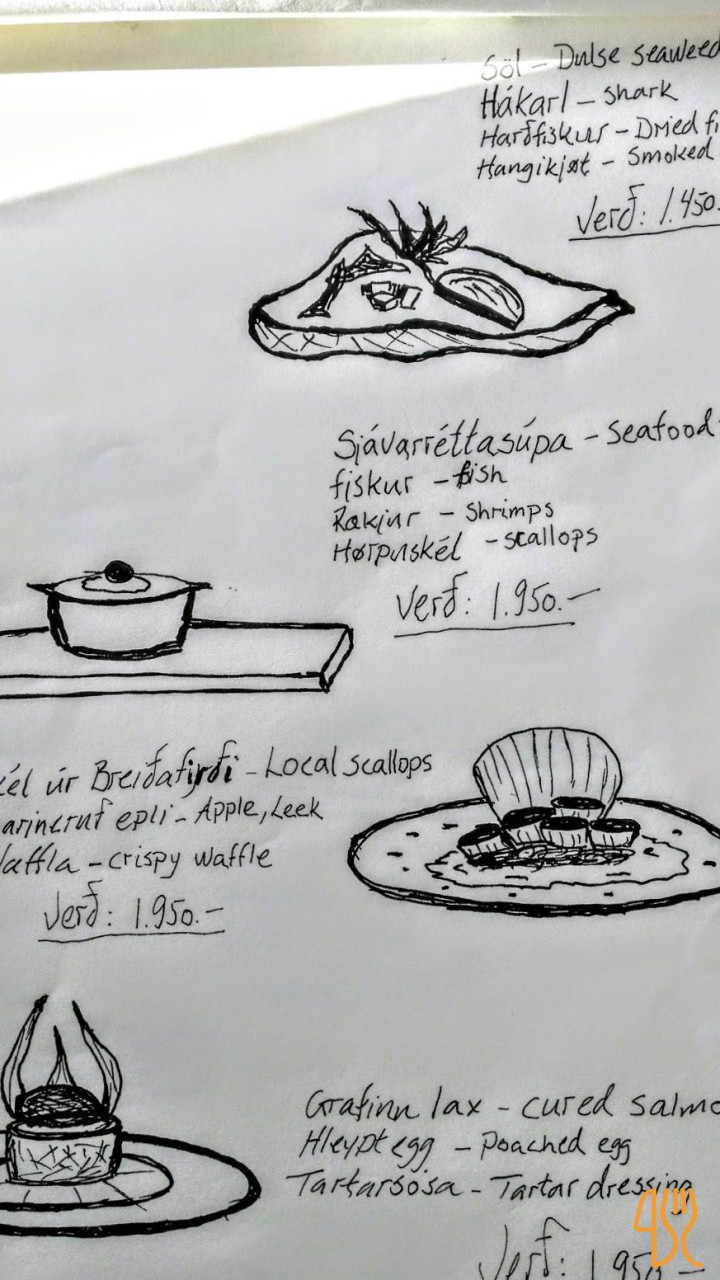 Söl - Dulse seaweed
Hákarl - shark
Harðfiskur - Dried
Hangikjøt - Smoked
Verð: 1.450.
Sjávarréttasúpa - seafood
fiskur - fish
Rækjur - shrimps
Hørpuskél - scallops
Verð: 1.950.-
úr Breiðafirði - Local scallops
epli - Apple, Leek
- crispy waffle
Verð: 1.950.-
Grafinn lax - cured
Hleypt egg - Poached egg
Tartarsósa - Tartar dressing
Verð: